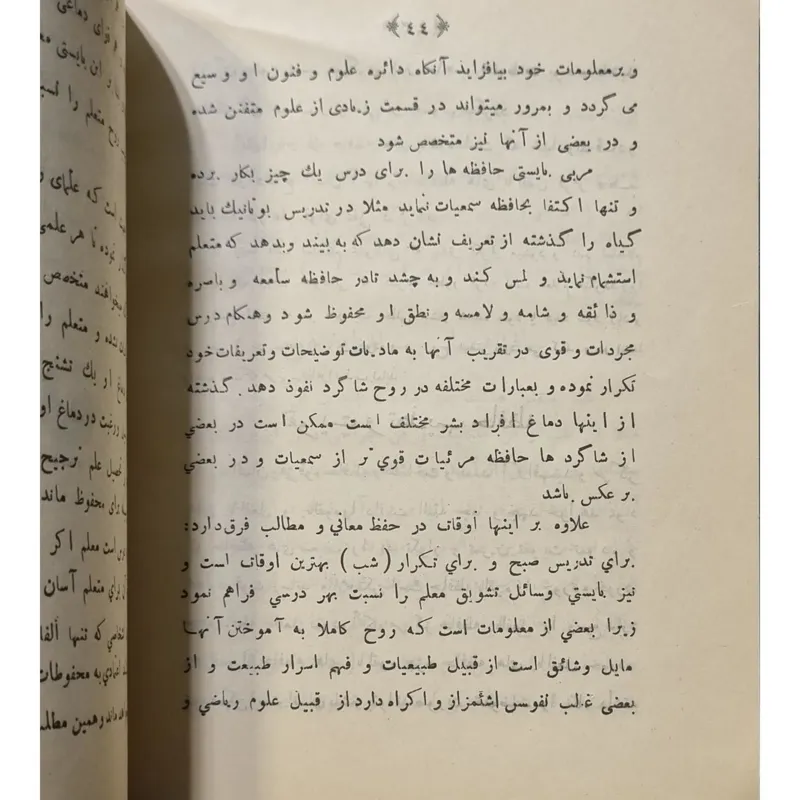 ٤٤
و برمعلومات خود بیافزاید آنکاه دائره علوم و فنون او وسیع
می گردد و بمرور میتواند در قسمت زیادی از علوم متفنن شده
و در بعضی از آنها نیز متخصص شود
مربی بایستی حافظه ها را برای درس یك چیز بکار برده
و تنها اکتفا بحافظه سمعیات ننماید مثلا در تدریس بوتانیك باید
گیاه را گذشته از تعریف نشان دهد که به بیند وبدهد که متعلم
استشمام نماید و لمس کند و به چشد تادر حافظه سامعه و باصره
و ذائقه و شامه و لامسه و نطق او محفوظ شود وهنکام درس
مجردات و قوی در تقریب آنها به مادیات توضیحات وتعریفات خود
تکرار نموده و بعبارات مختلفه در روح شاگرد نفوذ دهد. گذشته
از اینها دماغ افراد بشر مختلف است ممکن است در بعضي
از شاگرد ها حافظه مرئیات قوي تر از سمعیات و در بعضي
بر عکس باشد
علاوه بر اینها أوقات در حفظ معاني و مطالب فرق دارد:
براي تدریس صبح و براي تکرار (شب) بهترین اوقات است و
نیز بایستي وسائل تشویق معلم را نسبت بهر درسي فراهم نمود
زیرا بعضي از معلومات است که روح کاملا به آموختن آنها
مایل وشائق است از قبیل طبیعیات و فهم اسرار طبیعت و از
بعضی غالب نفوس اشئمزاز و اکراه دارد از قبیل علوم ریاضي و
دماغی
قوای
این بایستی
متعلم را
است که علمای
هر علمی
متخصص
شده و متعلم را
او یك تشنج
در دماغ او
علم ترجیح
برای محفوظ ماند
است معلم اکر
براي متعلم آسان
که تنها ألفا
به محفوظات
وهمین مطلب